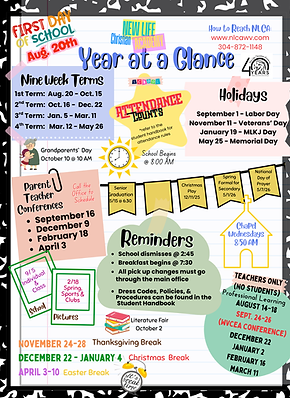 FIRST DAY
OF SCHOOL
Aug. 20th
NEW LIFE
Christian Academy
How to Reach NLCA
www.nlcawv.com
304-872-1148
Year at a Glance
40
YEARS
Nine Week Terms
1st Term: Aug. 20 - Oct. 15
2nd Term: Oct. 16 - Dec. 22
3rd Term: Jan. 5 - Mar. 11
4th Term: Mar. 12 - May 26
ATTENDANCE
COUNTS
*refer to the
Student handbook for
attendance rules
Holidays
September 1 - Labor Day
November 11 - Veterans' Day
January 19 - MLKJ Day
May 25 - Memorial Day
Grandparents' Day
October 10 @ 10 AM
School Begins
@ 8:00 AM
Parent
Teacher
Conferences
Call the
Office to
Schedule
September 16
December 9
February 18
April 3
Senior
Graduation
5/15 @ 6:30
Christmas
Play
12/11/25
Spring
Formal for
Secondary
5/1/26
National
Day of
Prayer
5/7/26
Chapel
Wednesdays
8:50 AM
Reminders
School dismisses @ 2:45
Breakfast begins @ 7:30
All pick up changes must go
through the main office
Dress Codes, Policies, &
Procedures can be found in the
Student Handbook
9/5
Individual
& Class
School
2/18
Spring,
Sports &
Clubs
Pictures
Literature Fair
October 2
TEACHERS ONLY
(NO STUDENTS)
Professional Learning
AUGUST 14-18
SEPT. 24-26
(WVCEA CONFERENCE)
DECEMBER 22
JANUARY 2
FEBRUARY 16
MARCH 11
NOVEMBER 24-28 Thanksgiving Break
DECEMBER 22 - JANUARY 4 Christmas Break
APRIL 3-10 Easter Break